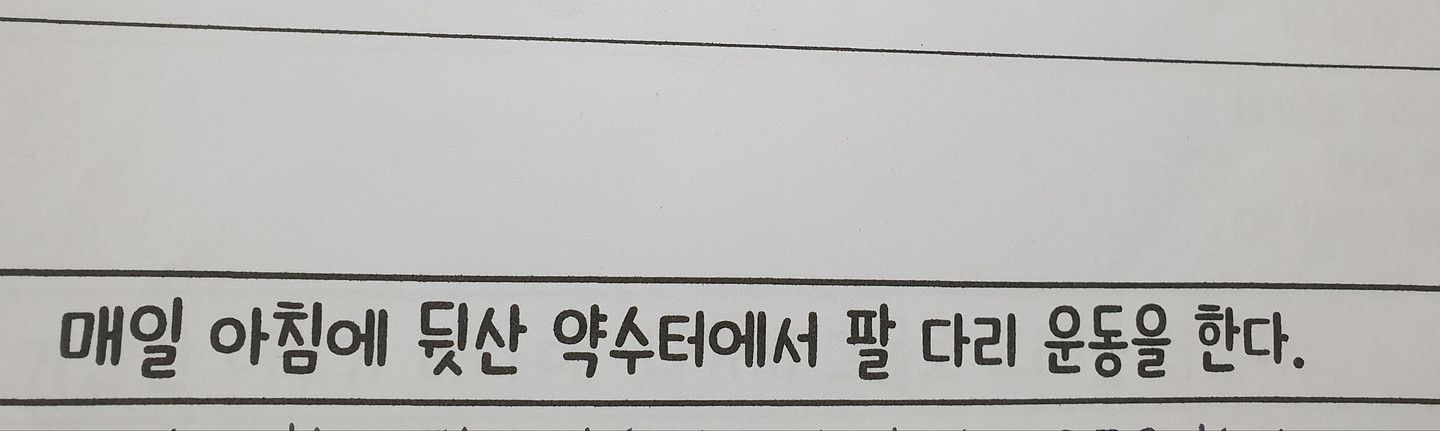 매일 아침에 뒷산 약수터에서 팔 다리 운동을 한다.